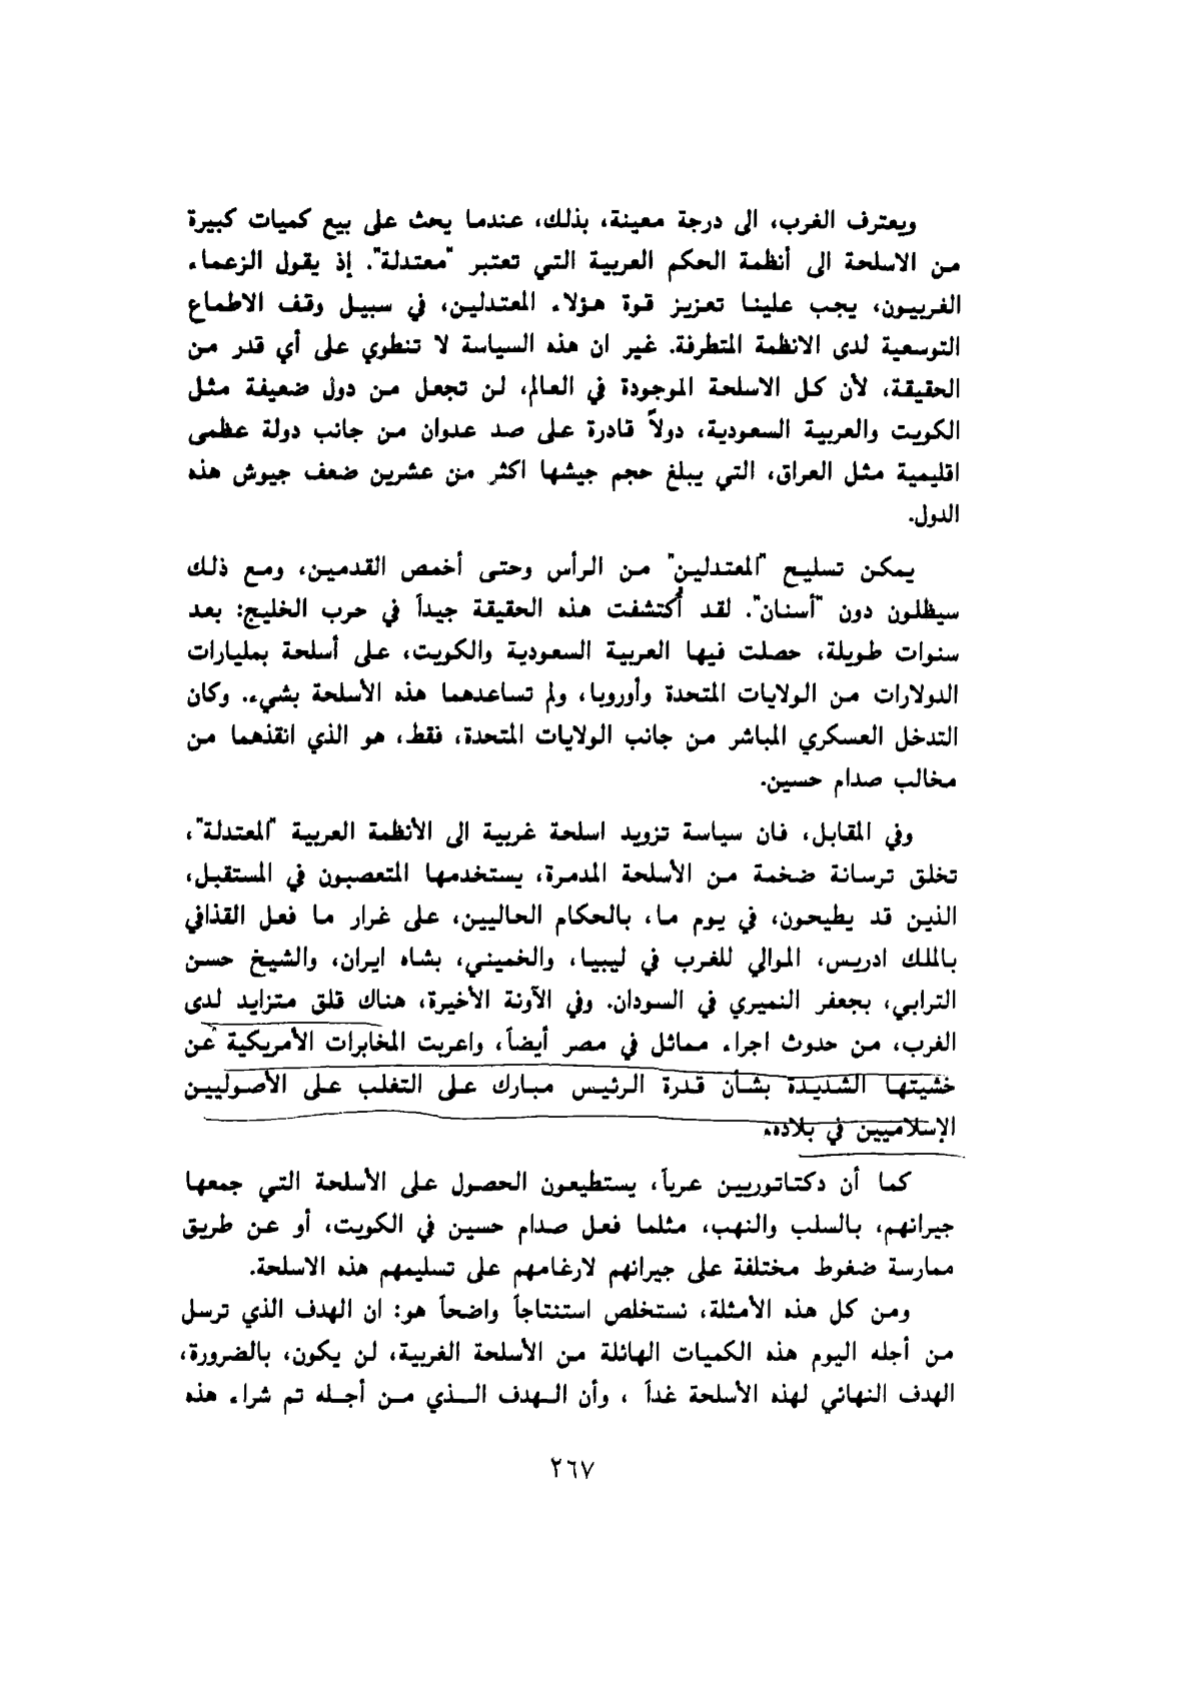 ويعترف الغرب، الى درجة معينة، بذلك، عندما يحث على بيع كميات كبيرة
من الاسلحة الى أنظمة الحكم العربية التي تعتبر "معتدلة". إذ يقول الزعماء
الغربيون، يجب علينا تعزيز قوة هؤلاء المعتدلين، في سبيل وقف الاطماع
التوسعية لدى الانظمة المتطرفة. غير ان هذه السياسة لا تنطوي على أي قدر من
الحقيقة، لأن كل الاسلحة الموجودة في العالم، لن تجعل من دول ضعيفة مثل
الكويت والعربية السعودية، دولاً قادرة على صد عدوان من جانب دولة عظمى
اقليمية مثل العراق، التي يبلغ حجم جيشها اكثر من عشرين ضعف جيوش هذه
الدول.
يمكن تسليح "المعتدلين" من الرأس وحتى أخمص القدمين، ومع ذلك
سيظلون دون "أسنان". لقد أُكتشفت هذه الحقيقة جيداً في حرب الخليج: بعد
سنوات طويلة، حصلت فيها العربية السعودية والكويت، على أسلحة بمليارات
الدولارات من الولايات المتحدة وأوروبا، ولم تساعدهما هذه الأسلحة بشيء. وكان
التدخل العسكري المباشر من جانب الولايات المتحدة، فقط، هو الذي انقذهما من
مخالب صدام حسين.
وفي المقابل، فان سياسة تزويد اسلحة غربية الى الأنظمة العربية "المعتدلة"،
تخلق ترسانة ضخمة من الأسلحة المدمرة، يستخدمها المتعصبون في المستقبل،
الذين قد يطيحون، في يوم ما، بالحكام الحاليين، على غرار ما فعل القذافي
بالملك ادريس، الموالي للغرب في ليبيا، والخميني، بشاه ايران، والشيخ حسن
الترابي، بجعفر النميري في السودان. وفي الآونة الأخيرة، هناك قلق متزايد لدى
الغرب، من حدوث اجراء مماثل في مصر أيضاً، واعربت المخابرات الأمريكية عن
خشيتها الشديدة بشأن قدرة الرئيس مبارك على التغلب على الأصوليين
الإسلاميين في بلاده.
كما أن دكتاتوريين عرباً، يستطيعون الحصول على الأسلحة التي جمعها
جيرانهم، بالسلب والنهب، مثلما فعل صدام حسين في الكويت، أو عن طريق
ممارسة ضغوط مختلفة على جيرانهم لارغامهم على تسليمهم هذه الاسلحة.
ومن كل هذه الأمثلة، نستخلص استنتاجاً واضحاً هو: ان الهدف الذي ترسل
من أجله اليوم هذه الكميات الهائلة من الأسلحة الغربية، لن يكون، بالضرورة،
الهدف النهائي لهذه الأسلحة غداً ، وأن الهدف الذي من أجله تم شراء هذه
٢٦٧